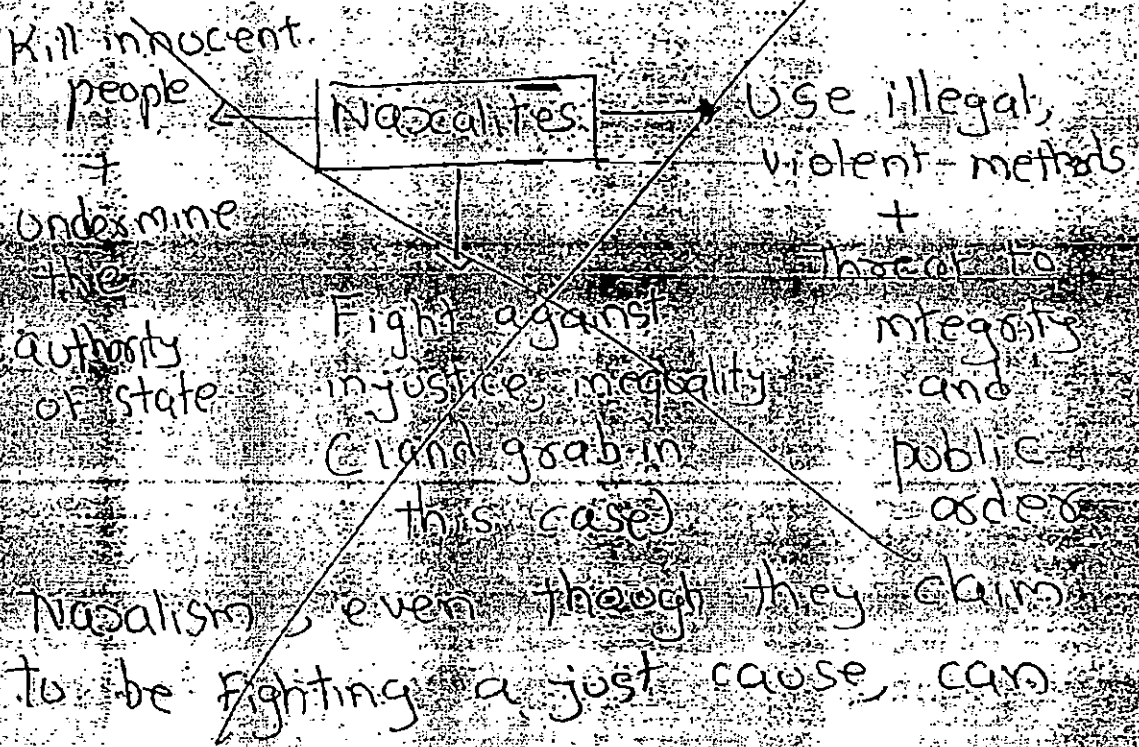 Kill innocent
people
+
undermine
the
authority
of state
Naxalites
Use illegal,
violent methods
+
Threat to
integrity
and
public
order
Fight against
injustice, inequality
(land grab in
this case)
Naxalism, even though they claim
to be fighting a just cause, can